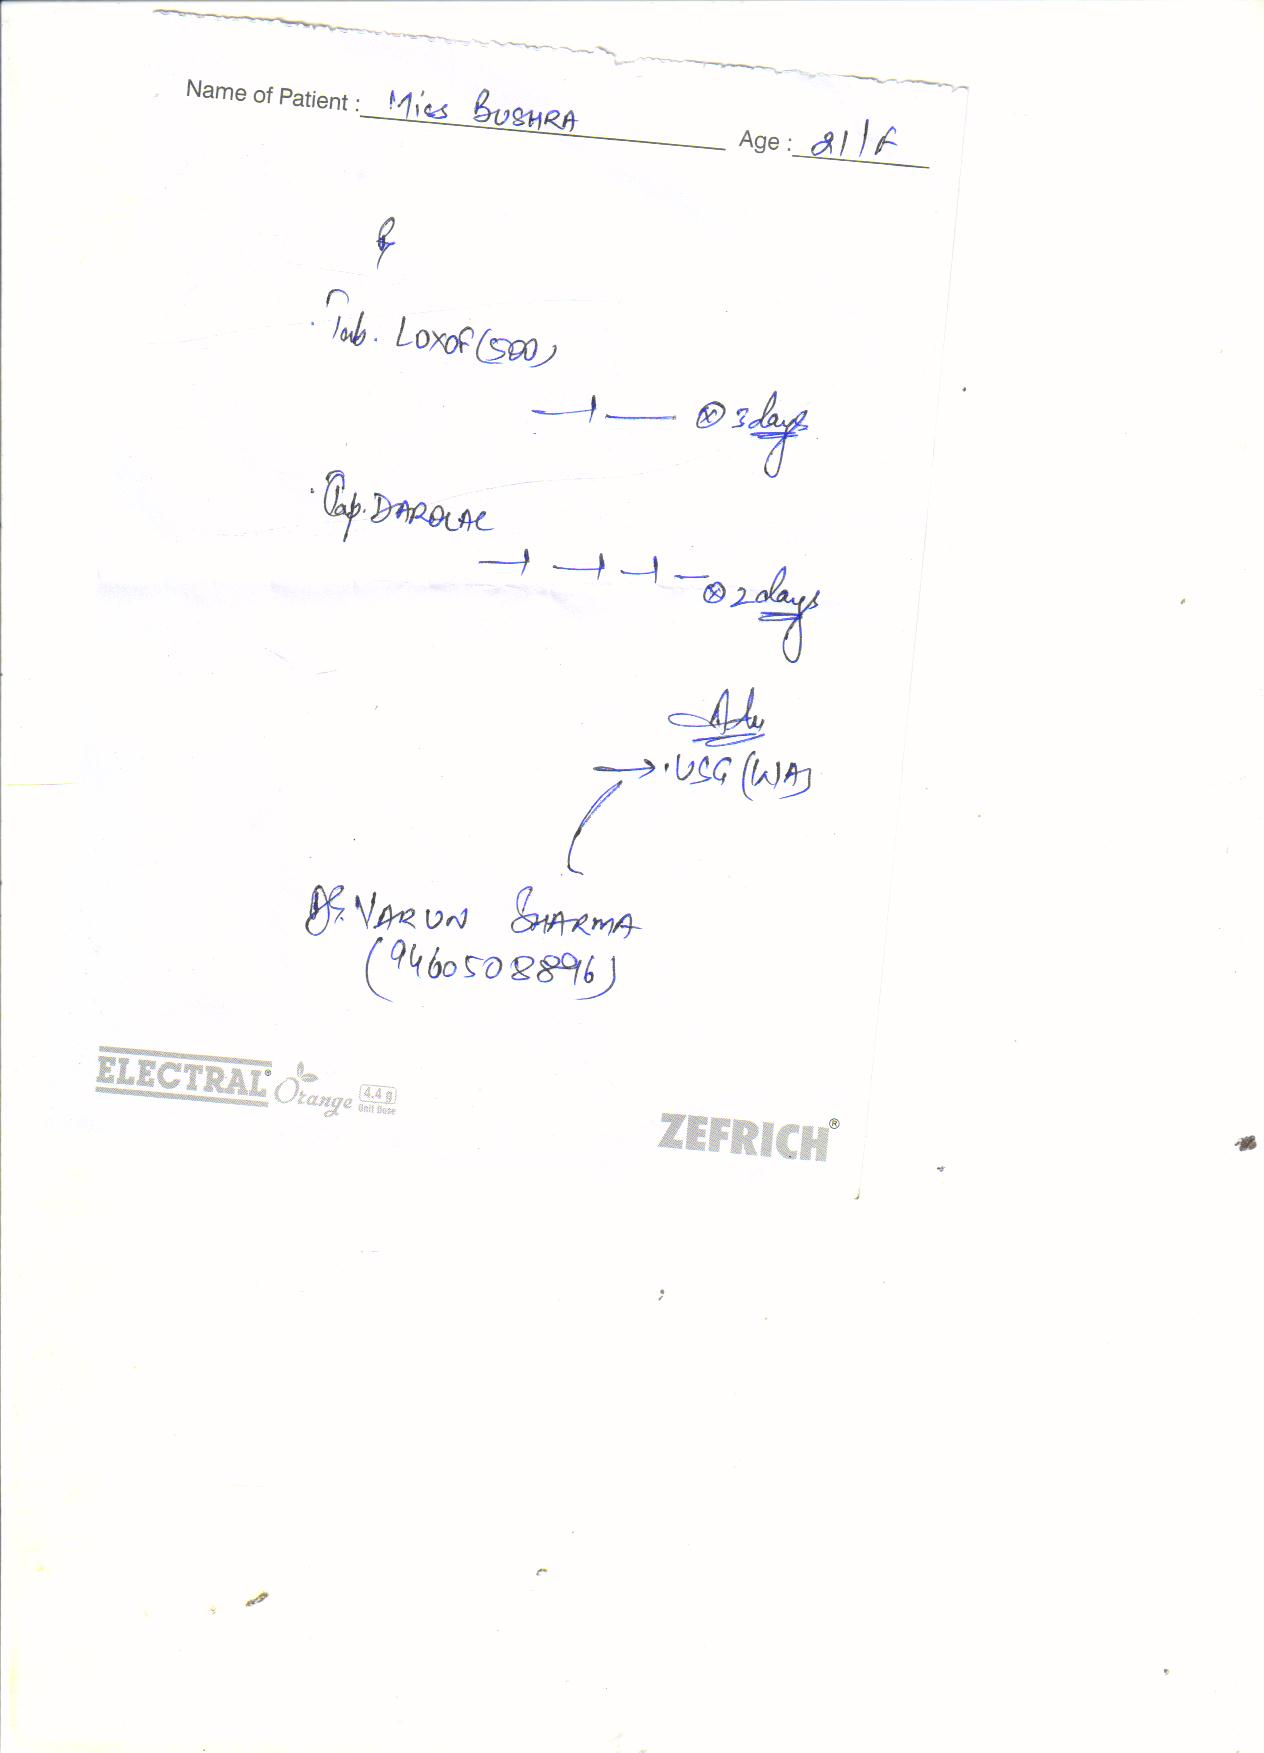 Name of Patient : Miss BUSHRA
Age : 21/F
Rx
. Tab. LOXOF (500)
—|— ⊗ 3 days
. Cap. DAROLAC
—| —| —| — ⊗ 2 days
Adv
→ . USG (W/A)
Dr. VARUN SHARMA
(9460508896)
ELECTRAL® Orange 4.4 g
Unit Dose
ZEFRICH®